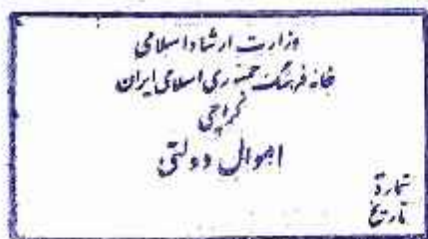 وزارت ارشاد اسلامی
خانه فرهنگ جمهوری اسلامی ایران
کراچی
اموال دولتی
شمارة
تاریخ